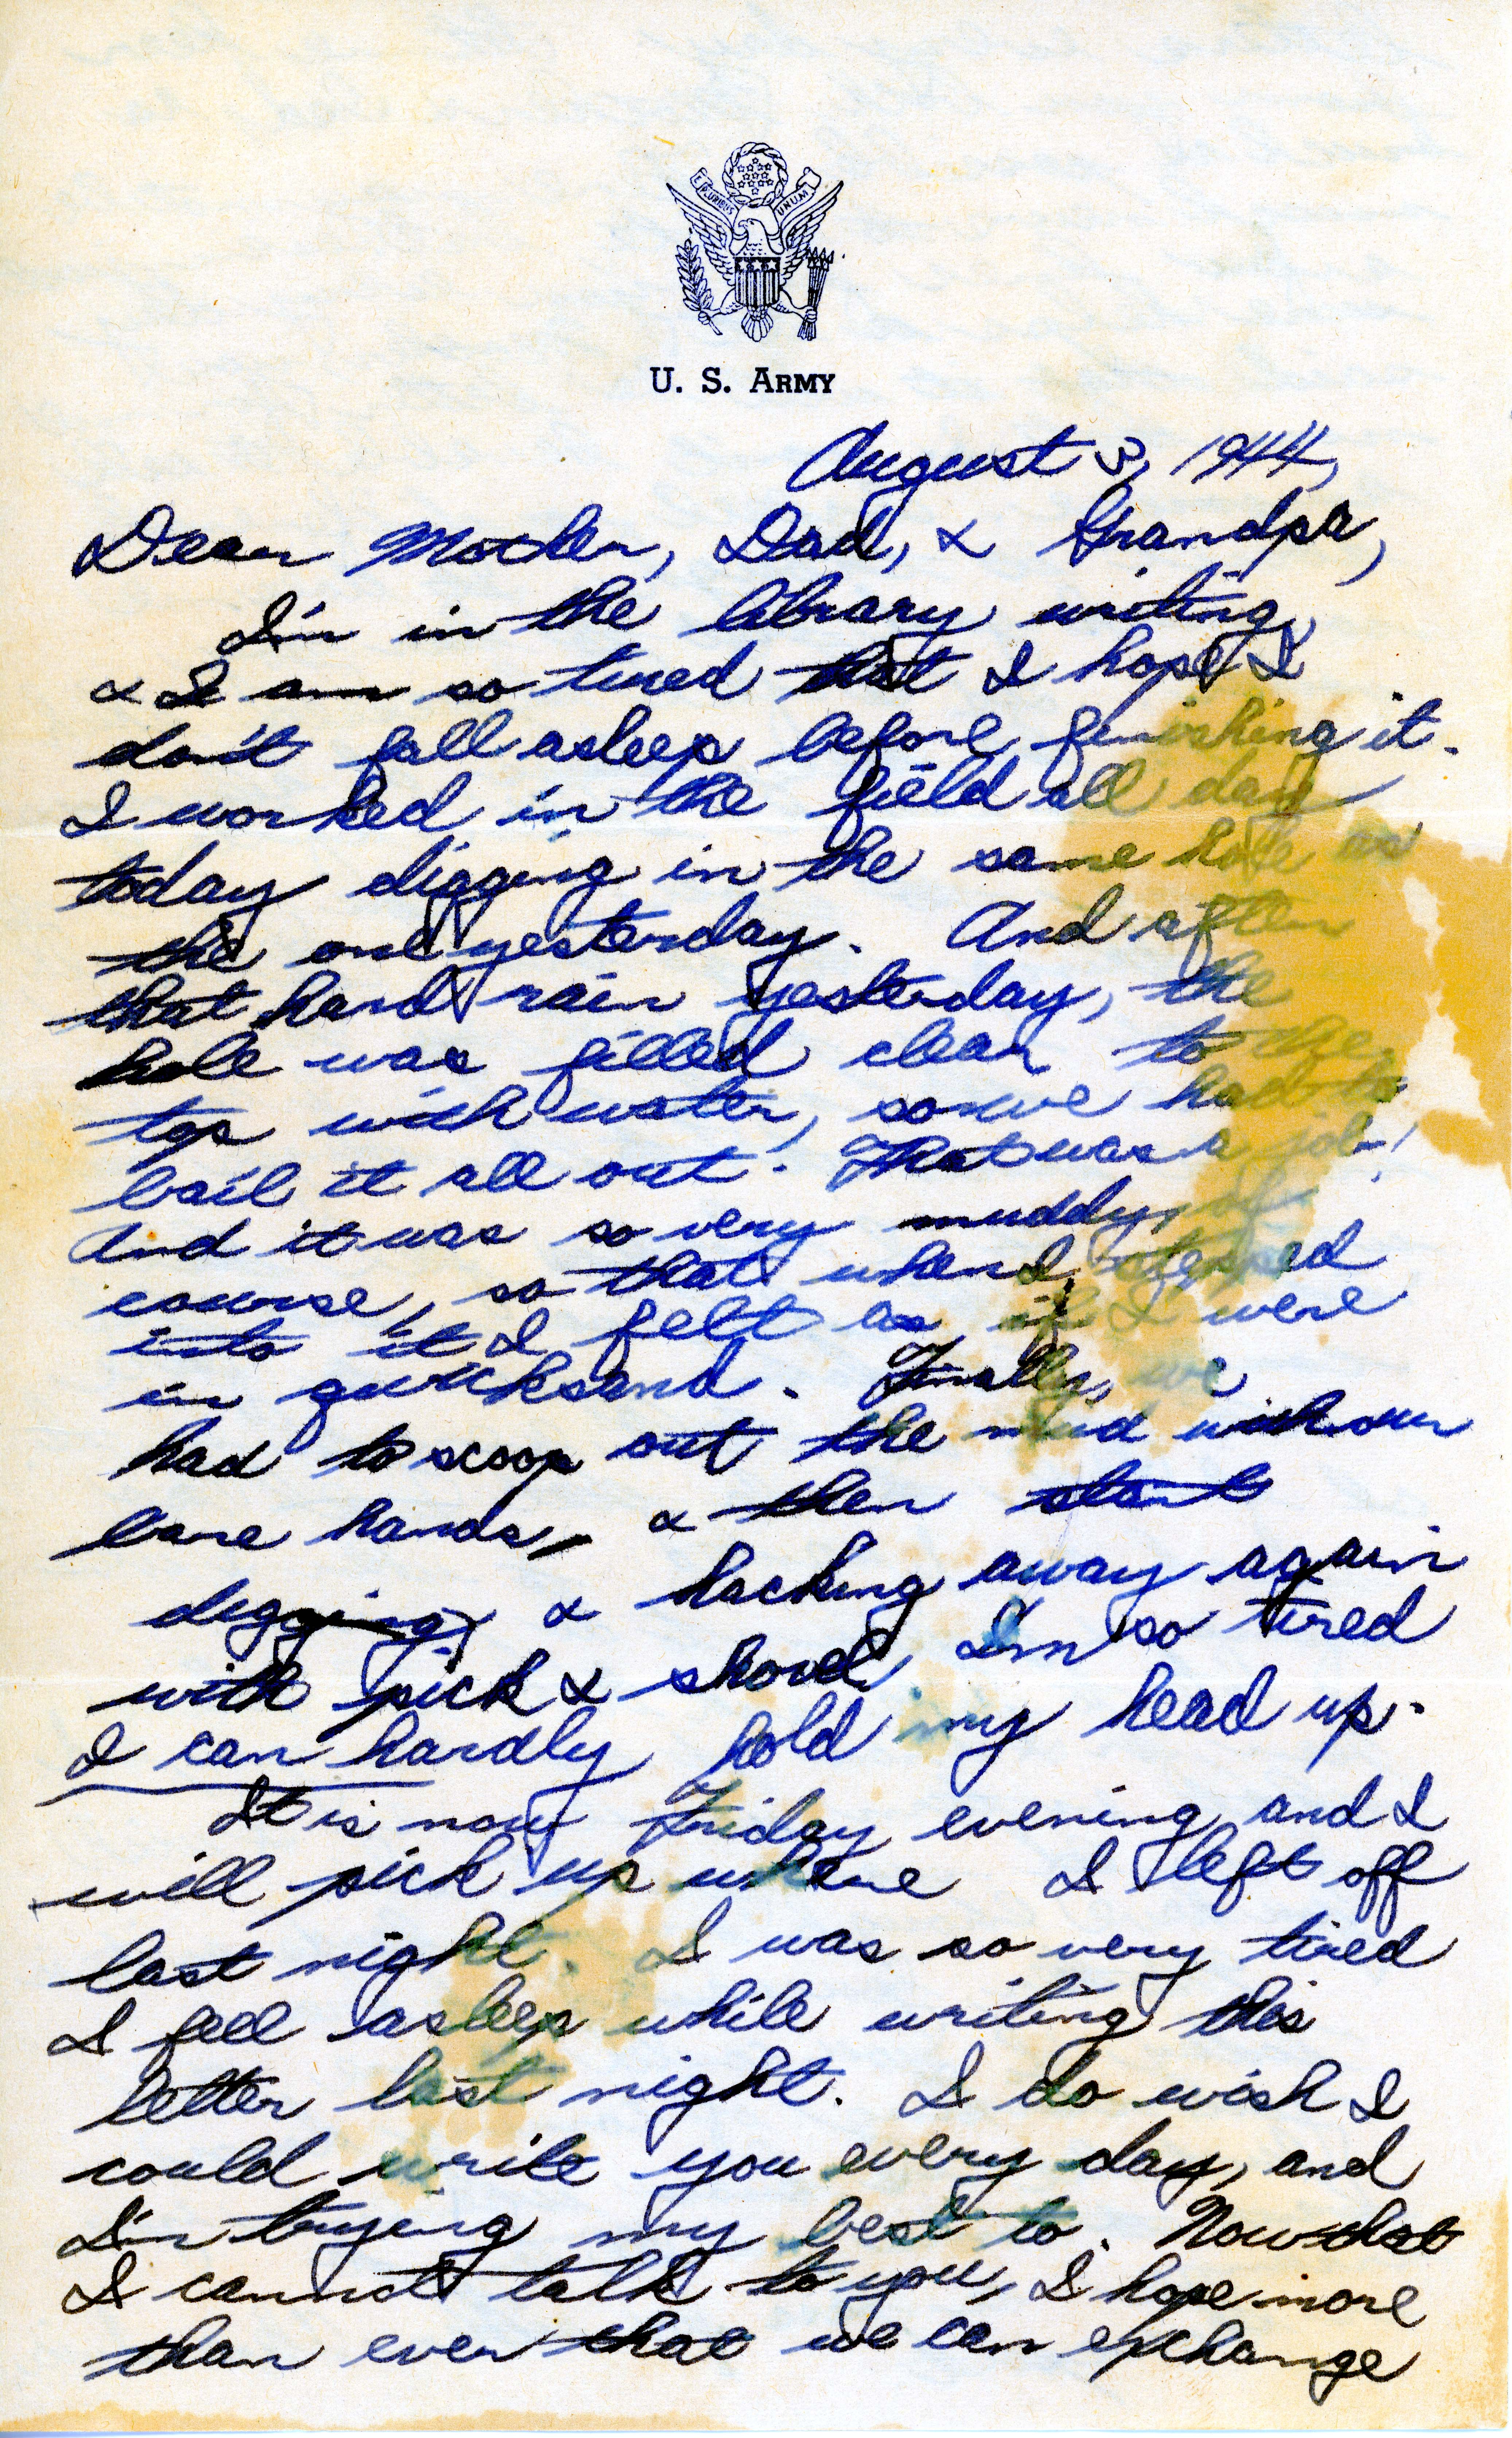 E PLURIBUS UNUM
U. S. ARMY
August 3, 1944,
Dear Mother, Dad, & Grandpa,
I'm in the library writing,
& I am so tired that I hope I
don't fall asleep before finishing it.
I worked in the field all day
today digging in the same hole as
the one yesterday. And after
that hard rain yesterday, the
hole was filled clear to the
top with water, so we had to
bail it all out. That was a job!
And it was so very muddy, of
course, so that when I stepped
into it I felt as if I were
in quicksand. Finally, we
had to scoop out the mud with our
bare hands, & then start
digging & hacking away again
with pick & shovel. I'm so tired
I can hardly hold my head up.
It is now Friday evening, and I
will pick up where I left off
last night. I was so very tired
I fell asleep while writing this
letter last night. I do wish I
could write you every day, and
I'm trying my best to. Now that
I cannot talk to you, I hope more
than ever that we can exchange